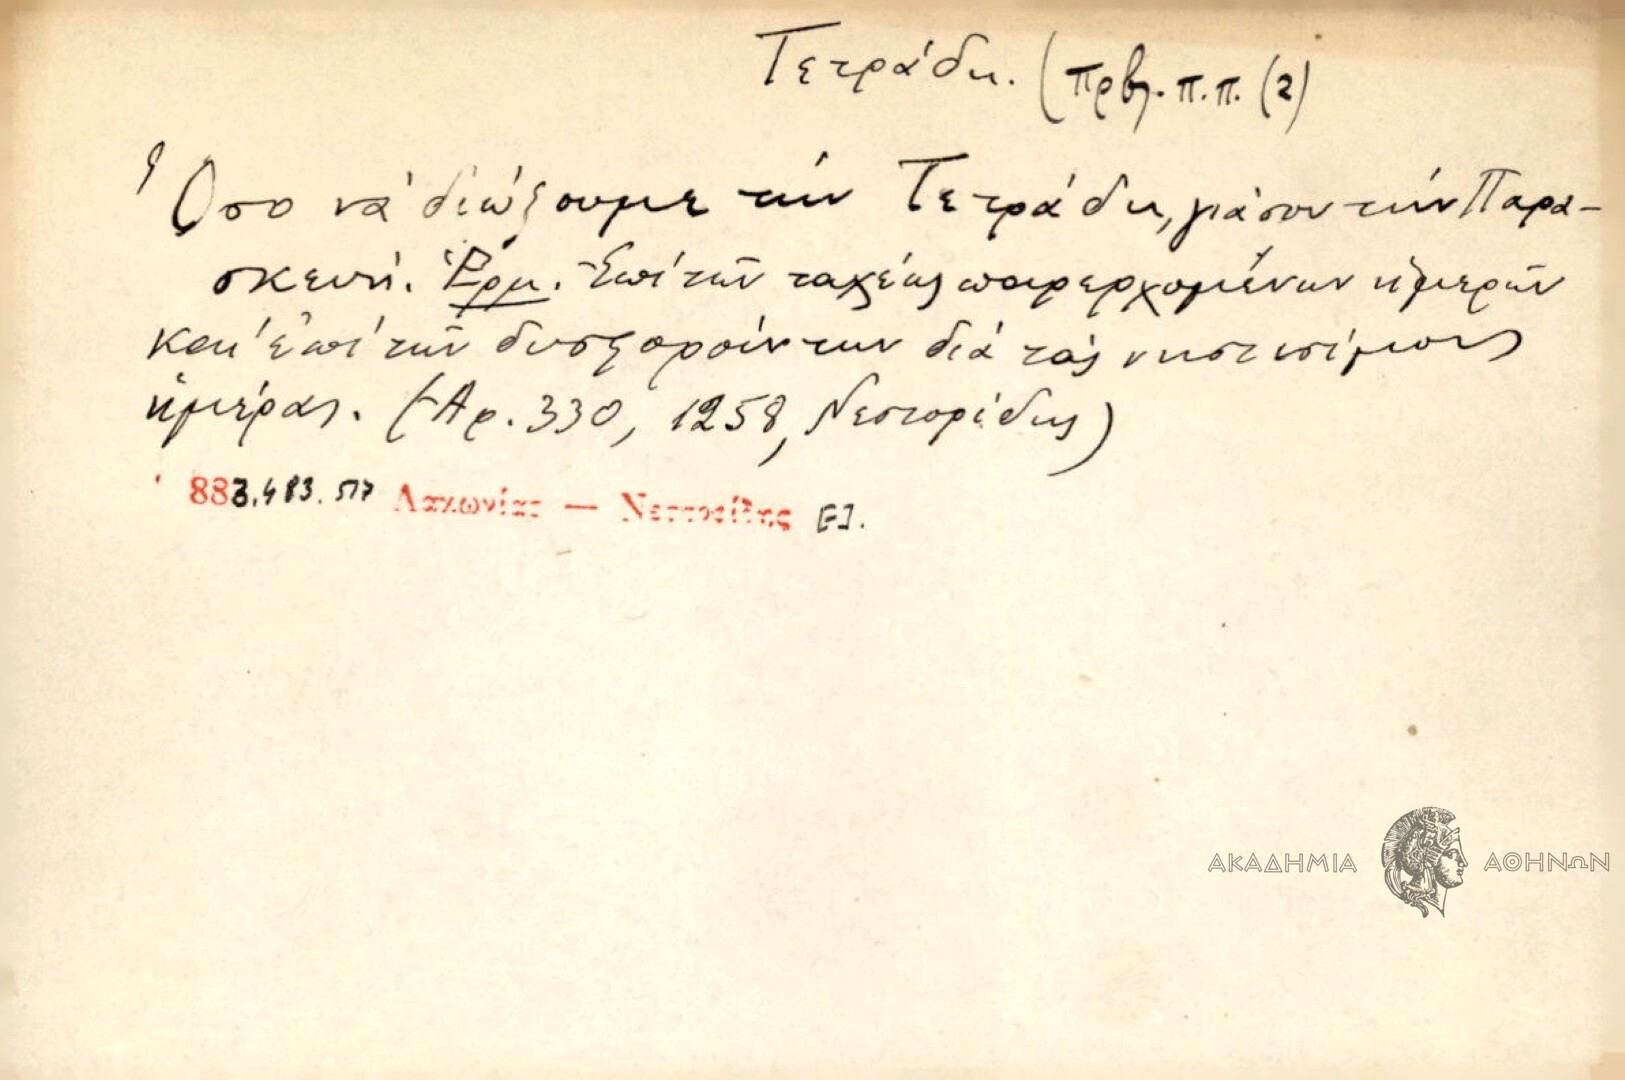 Τετράδη. (πρβλ. π.π. (2)
Ὅσο νὰ διώξουμε τὴν Τετράδη, γιάσου τὴν Παρα-
σκευή. Ἑρμ. Ἐπὶ τῶν ταχέως παρερχομένων ἡμερῶν
καὶ ἐπὶ τῶν δυσφορούντων διὰ τὰς νηστησίμους
ἡμέρας. (Ἀρ. 330, 1258, Νεστορίδης)
883.483.517 Λακωνίας — Νεστορίδης
ΑΚΑΔΗΜΙΑ ΑΘΗΝΩΝ